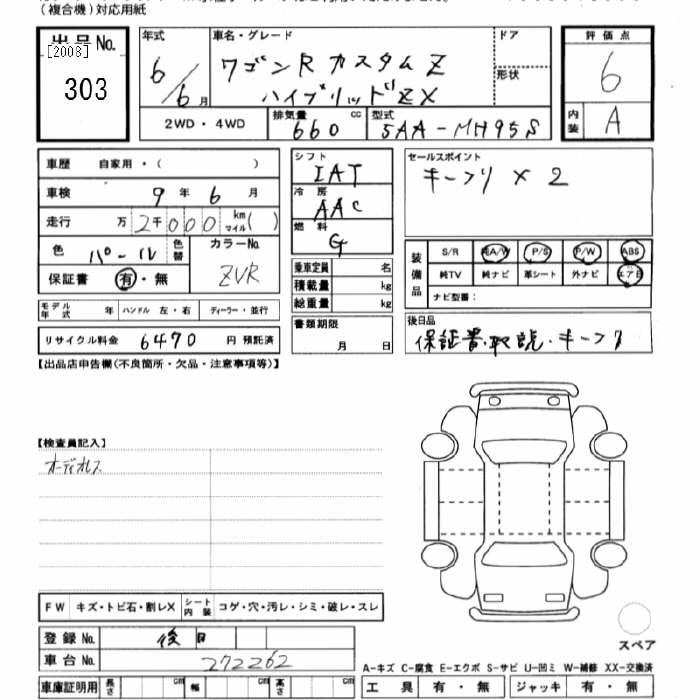 (複合機)対応用紙
出品No.
[2008]
303
年式
6/6月
車名・グレード
ワゴンR カスタムZ
ハイブリッドZX
ドア
形状
評価点
6
内装
A
2WD・4WD
排気量
660 cc
型式
5AA-MH95S
車歴 自家用・( )
車検 9年 6月
走行 万 2千000 km マイル( )
色 パール 色替
カラーNo.
ZVR
保証書 有・無
モデル年式 年 ハンドル 左・右 ディーラー・並行
リサイクル料金 6470 円 預託済
シフト
IAT
冷房
AAC
燃料
G
乗車定員 名
積載量 kg
総重量 kg
書類期限
月 日
セールスポイント
キーフリ×2
装備品
S/R 純A/W P/S P/W ABS
純TV 純ナビ 革シート 外ナビ エアB
ナビ型番:
後日品
保証書・取説・キーフリ
【出品店申告欄(不良箇所・欠品・注意事項等)】
【検査員記入】
オーディオレス
FW キズ・トビ石・割レX シート内装 コゲ・穴・汚レ・シミ・破レ・スレ
登録No. 後日
車台No. 272262
車庫証明用 長さ cm 幅 cm 高さ cm
スペア
A-キズ C-腐食 E-エクボ S-サビ U-凹ミ W-補修 XX-交換済
工具 有・無 ジャッキ 有・無